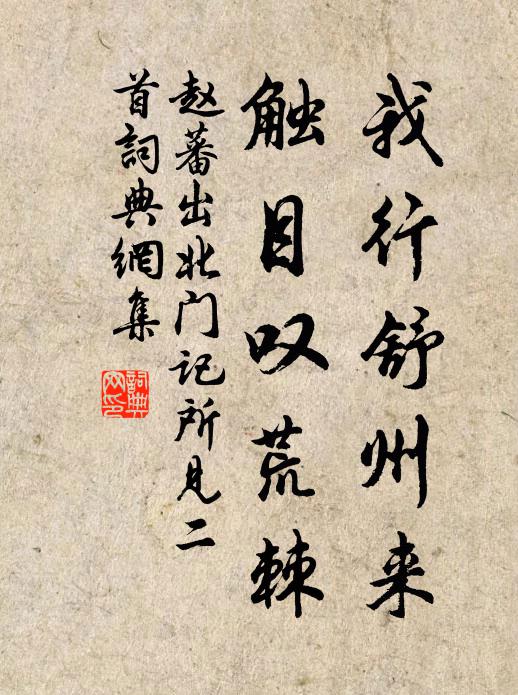 我行舒州来
触目叹荒棘
赵蕃出北门记所见二
首词典網集
詞典
网印